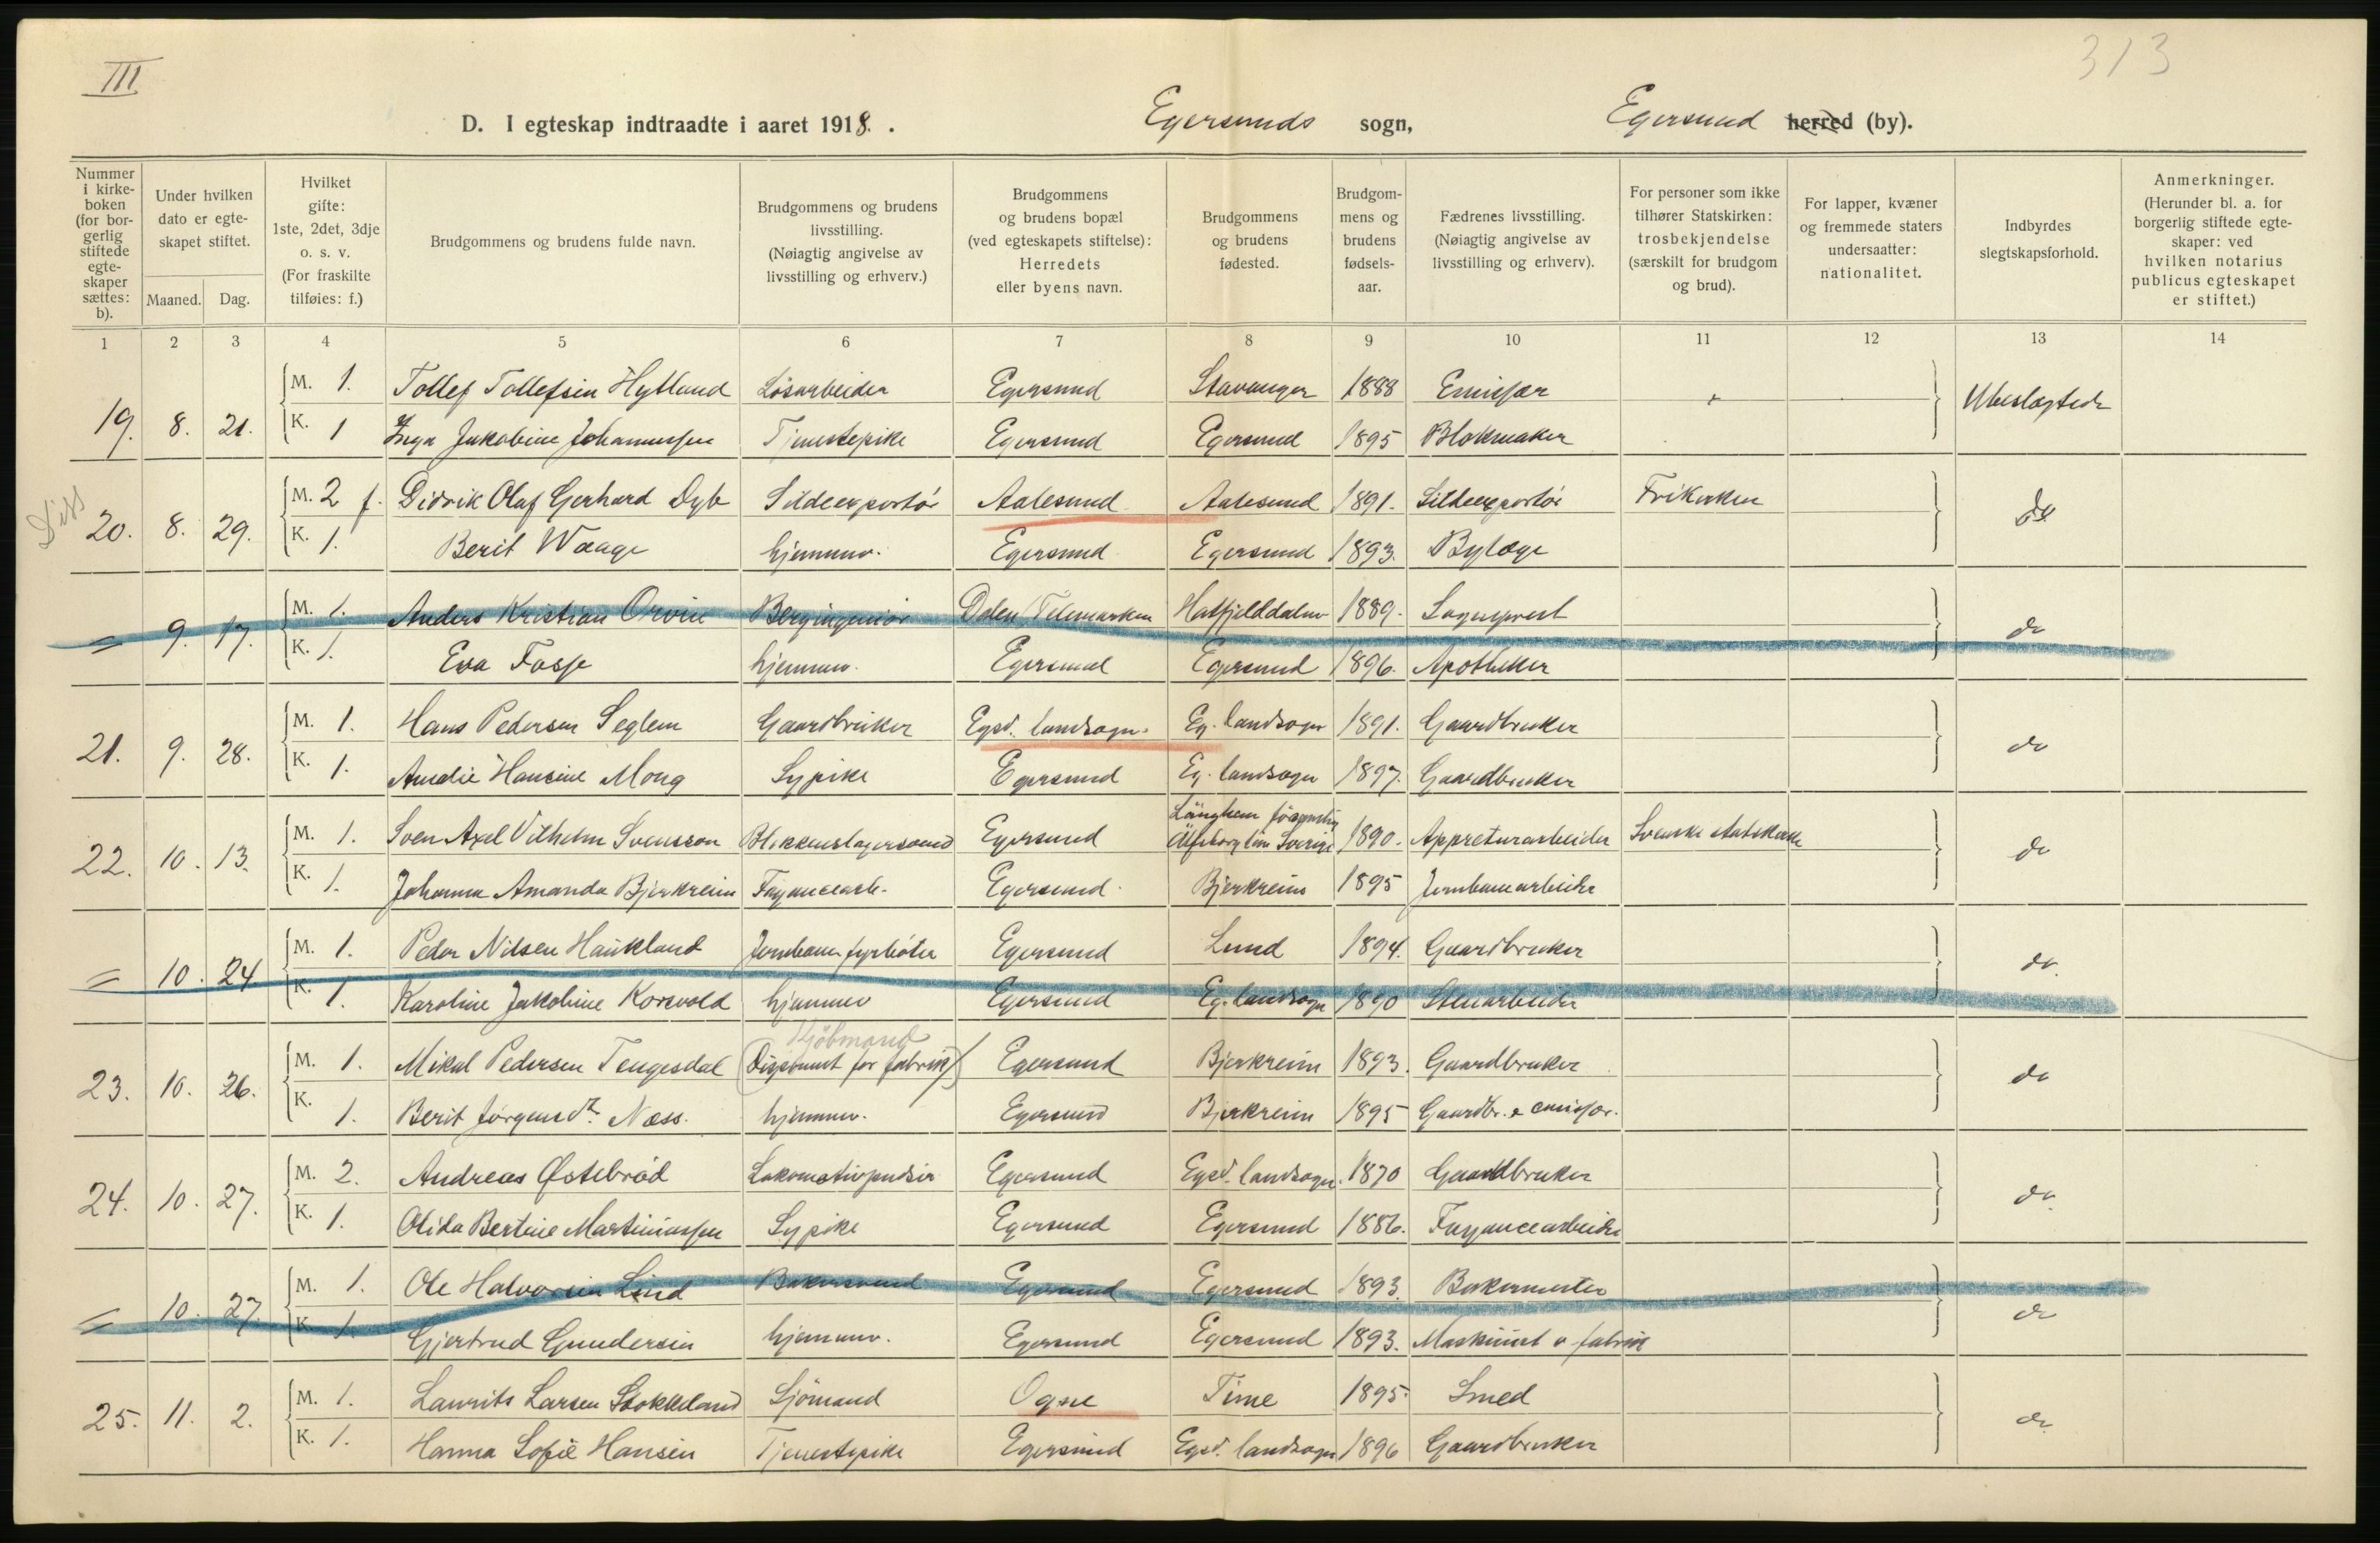 III
313
D. I egteskap indtraadte i aaret 1918. . Egersunds sogn, Egersund herred (by).
Nummer i kirkeboken (for borgerlig stiftede egteskaper sættes: b).
Under hvilken dato er egteskapet stiftet.
Maaned. Dag.
Hvilket gifte: 1ste, 2det, 3dje o. s. v. (For fraskilte tilføies: f.)
Brudgommens og brudens fulde navn.
Brudgommens og brudens livsstilling. (Nøiagtig angivelse av livsstilling og erhverv.)
Brudgommens og brudens bopæl (ved egteskapets stiftelse): Herredets eller byens navn.
Brudgommens og brudens fødested.
Brudgommens og brudens fødselsaar.
Fædrenes livsstilling. (Nøiagtig angivelse av livsstilling og erhverv).
For personer som ikke tilhører Statskirken: trosbekjendelse (særskilt for brudgom og brud).
For lapper, kvæner og fremmede staters undersaatter: nationalitet.
Indbyrdes slegtskapsforhold.
Anmerkninger. (Herunder bl. a. for borgerlig stiftede egteskaper: ved hvilken notarius publicus egteskapet er stiftet.)
1 2 3 4 5 6 7 8 9 10 11 12 13 14
M. 1. Tollef Tollefsen Hytland Løsarbeider Egersund Stavanger 1888 Emissær
19. 8. 21. Ubeslægtede
K. 1 Inga Jakobine Johannessen Tjenestepike Egersund Egersund 1895 Blokmaker
M. 2 f. Didrik Olaf Gerhard Dyb Sildeexportør Aalesund Aalesund 1891. Sildeexportør Frikirken
Diss 20. 8. 29. do
K. 1. Berit Waage hjemmev. Egersund Egersund 1893. Bylæge
M. 1. Anders Kristian Orvin Bergingeniør Dalen Telemarken Hatfjelddalen 1889. Sogneprest
= 9. 17. do
K. 1. Eva Fosse hjemmev. Egersund Egersund 1896. Apotheker
M. 1. Hans Pedersen Seglem Gaardbruker Egsd. landsogn. Eg. landsogn 1891. Gaardbruker
21. 9. 28. do
K. 1. Amalie Hansine Mong Sypike Egersund Eg. landsogn 1897. Gaardbruker
M. 1. Sven Axel Vilhelm Svensson Blikkenslagersvend Egersund Länghem Älfsborg län Sverige 1890. Appreturarbeider Svenske statskirke
22. 10. 13. do
K. 1. Johanna Amanda Bjerkreim Fayancearb. Egersund. Bjerkreim 1895 Jernbanearbeider
M. 1. Peder Nilsen Haukland Jernbanefyrbøter Egersund Lund 1894. Gaardbruker
= 10. 24 do.
K. 1. Karoline Jakobine Korsvold hjemmev Egersund Eg. landsogn 1890 Stenarbeider
Kjöbmand
M. 1. Mikal Pedersen Tengesdal (Disponent for fabrik) Egersund Bjerkreim 1893. Gaardbruker
23. 10. 26. do
K. 1. Berit Jørgensdr. Næss. hjemmev. Egersund Bjerkreim 1895 Gaardbr. & emissær.
M. 2. Andreas Østebrød Lokomotivpudser Egersund Egsd. landsogn. 1870 Gaardbruker
24. 10. 27. do.
K. 1. Olida Bertine Martiniussen Sypike Egersund Egersund 1886. Fayancearbeider
M. 1. Ole Halvorsen Lind Bakersvend Egersund Egersund 1893. Bakermester
= 10. 27. do
K. 1. Gjertrud Gundersen hjemmev. Egersund Egersund 1893. Maskinist v. fabrik
M. 1. Laurits Larsen Stokkeland Sjömand Ogne Time 1895. Smed
25. 11. 2. do.
K. 1. Hanna Sofie Hansen Tjenestepike Egersund Egsd. landsogn 1896 Gaardbruker